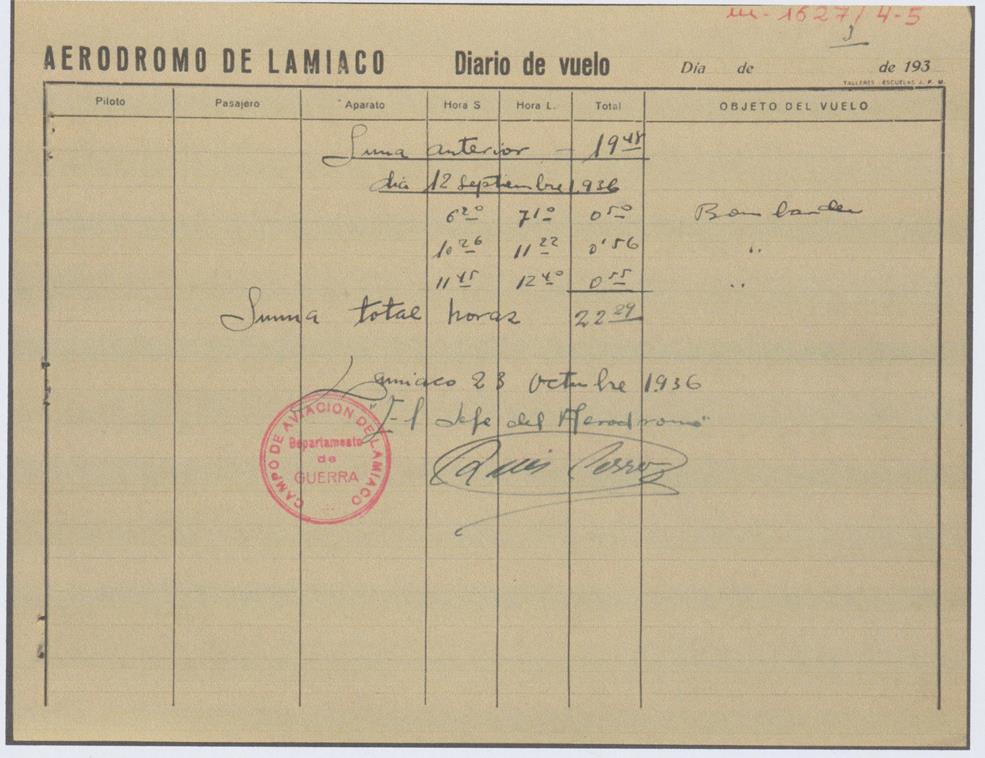 m-1627/4-5
3
AERODROMO DE LAMIACO Diario de vuelo Día de de 193
TALLERES-ESCUELAS J. P. M.
Piloto Pasajero Aparato Hora S Hora L. Total OBJETO DEL VUELO
Suma anterior - 19 48
día 12 Septiembre 1.936
6 20 7 10 0 50 Bombardeo
10 26 11 22 0'56 "
11 45 12 40 0 55 "
Suma total horas 22 29
Lamiaco 23 Octubre 1.936
"El Jefe del Aerodromo"
Luis
CAMPO DE AVIACION DE LAMIACO
Departamento
de
GUERRA